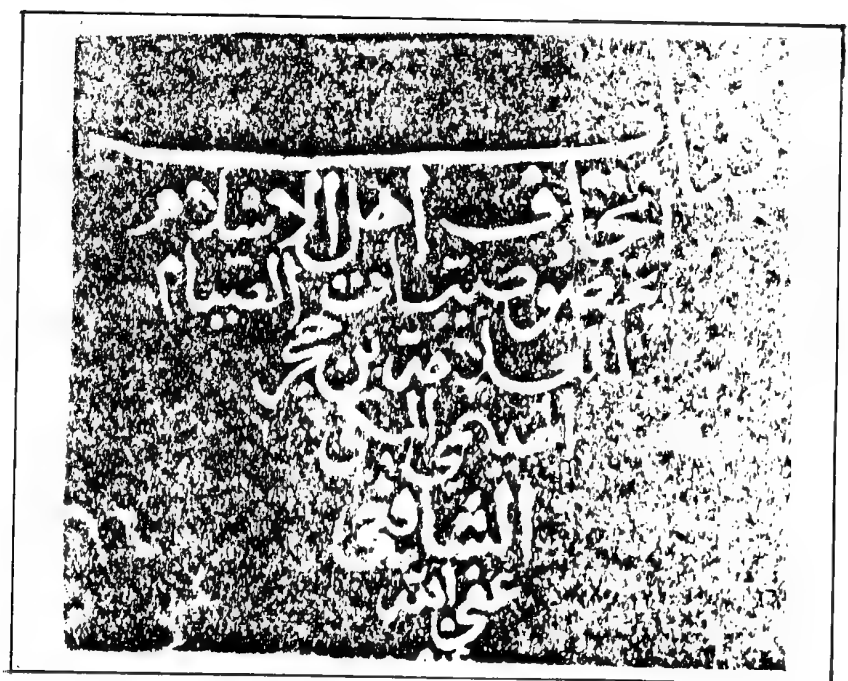 اتحاف اهل الاسلام
بخصوصيات الصيام
للعلامة بن حجر
الهيتمي المكي
الشافعي
عفى الله